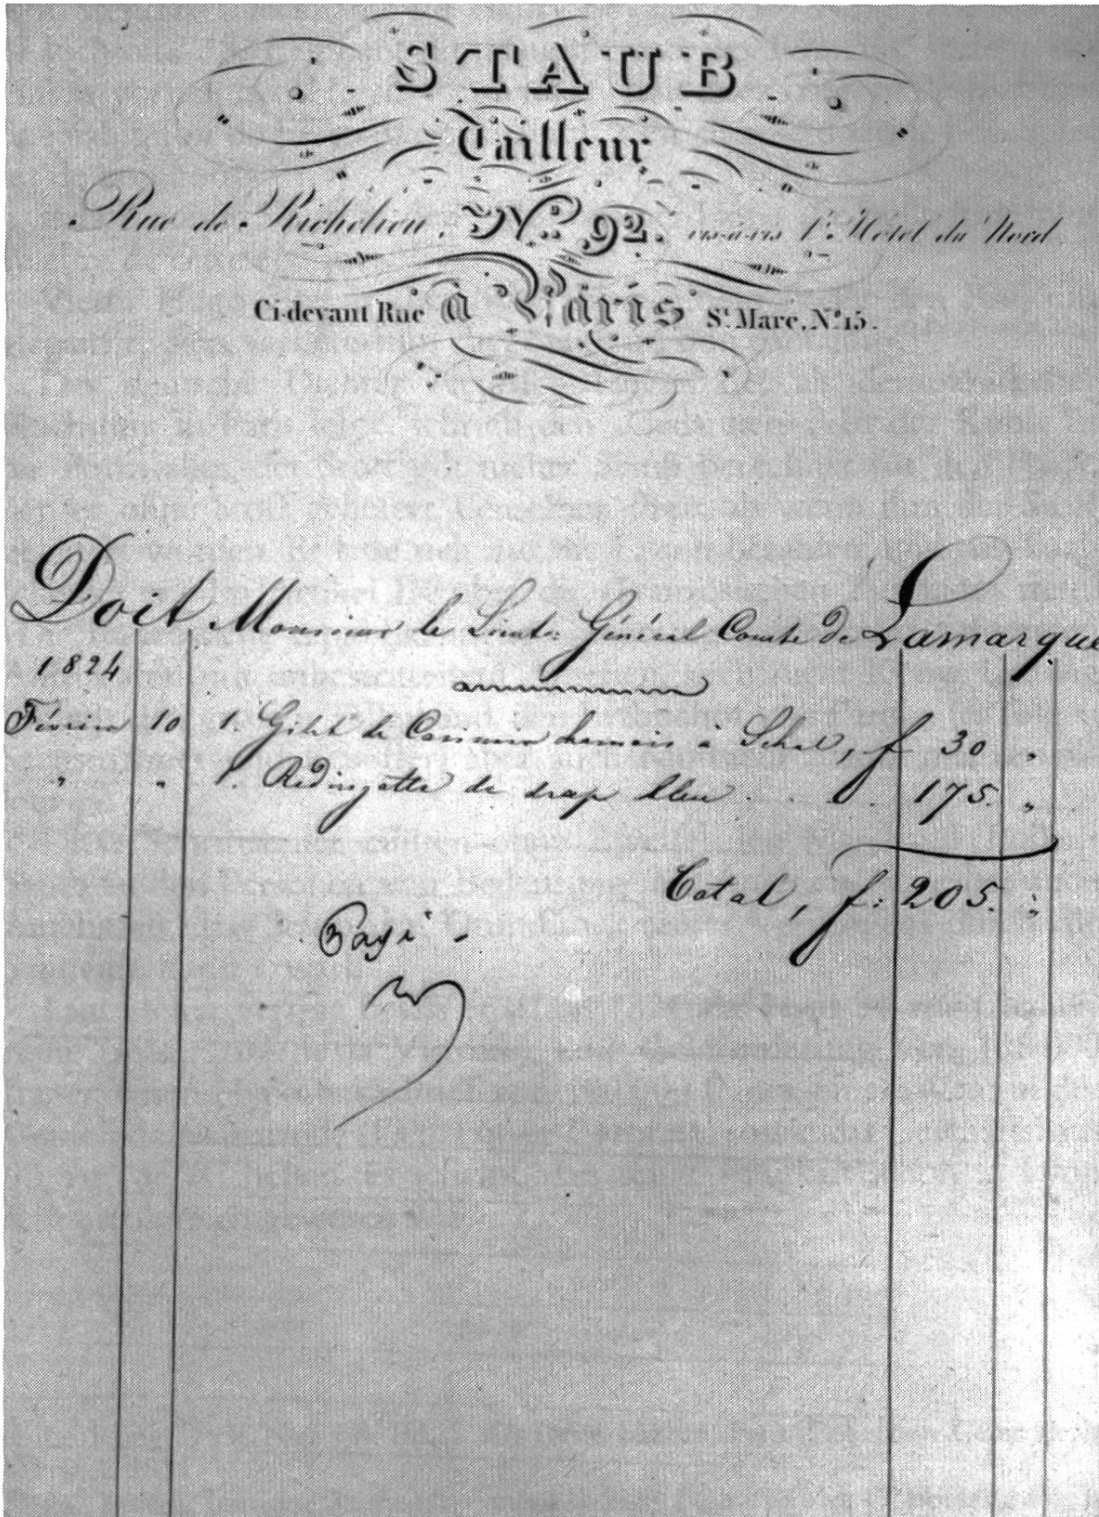 STAUB
Tailleur
Rue de Richelieu, N.º 92. vis-à-vis l'Hôtel du Nord
à Paris
Ci-devant Rue St. Marc, N.º 15.
Doit Monsieur le Lieut.ⁿ Général Comte de Lamarque
1824
Février 10 1. Gilet de Casimir chamois à Schal, f 30 "
" " 1. Redingotte de drap bleu . . . . 175. "
Total, f: 205. "
Payé -